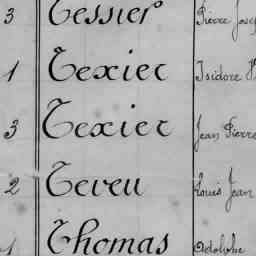 3 Tessier Pierre Josep
1 Texier Isidore
3 Texier Jean Pierre
2 Teveu Louis Jean
1 Thomas Adolphe